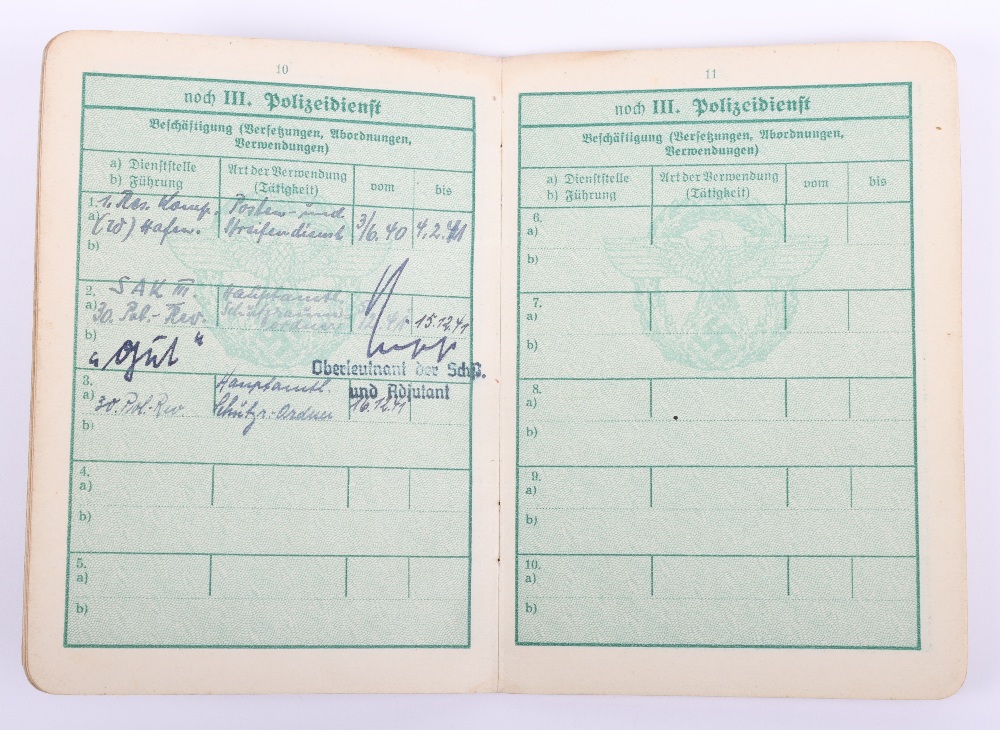 10
noch III. Polizeidienst
Beschäftigung (Versetzungen, Abordnungen,
Verwendungen)
a) Dienststelle
b) Führung
Art der Verwendung
(Tätigkeit)
vom
bis
1. 1. Res. Komp. Posten- und
a) (w) Hafen. Streifendienst 3/6.40 4.2.41
b)
2. SAK III. Hauptamtl.
a) 30. Pol.-Rev. 15.12.41
b)
„gut“
Oberleutnant der Sch.
und Adjutant
3. Hauptamtl.
a) 30. Pol.-Rev. Schutzr.-Ordner 16.12.41
b)
4.
a)
b)
5.
a)
b)
11
noch III. Polizeidienst
Beschäftigung (Versetzungen, Abordnungen,
Verwendungen)
a) Dienststelle
b) Führung
Art der Verwendung
(Tätigkeit)
vom
bis
6.
a)
b)
7.
a)
b)
8.
a)
b)
9.
a)
b)
10.
a)
b)